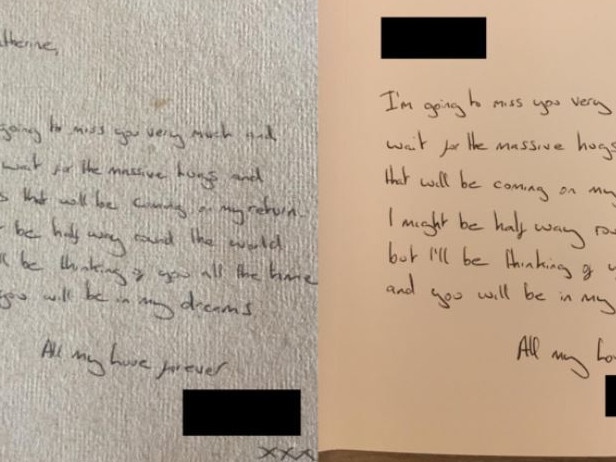 therine,
going to miss you very much and
wait for the massive hugs and
s that will be coming on my return.
t be half way round the world
ll be thinking of you all the time
you will be in my dreams
All my love forever
xxx
I'm going to miss you very
wait for the massive hugs
that will be coming on my
I might be half way rou
but I'll be thinking of y
and you will be in my
All my lo